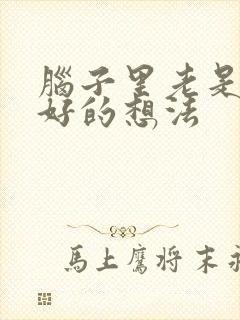 腦子里老是
好的想法
馬上鷹將末